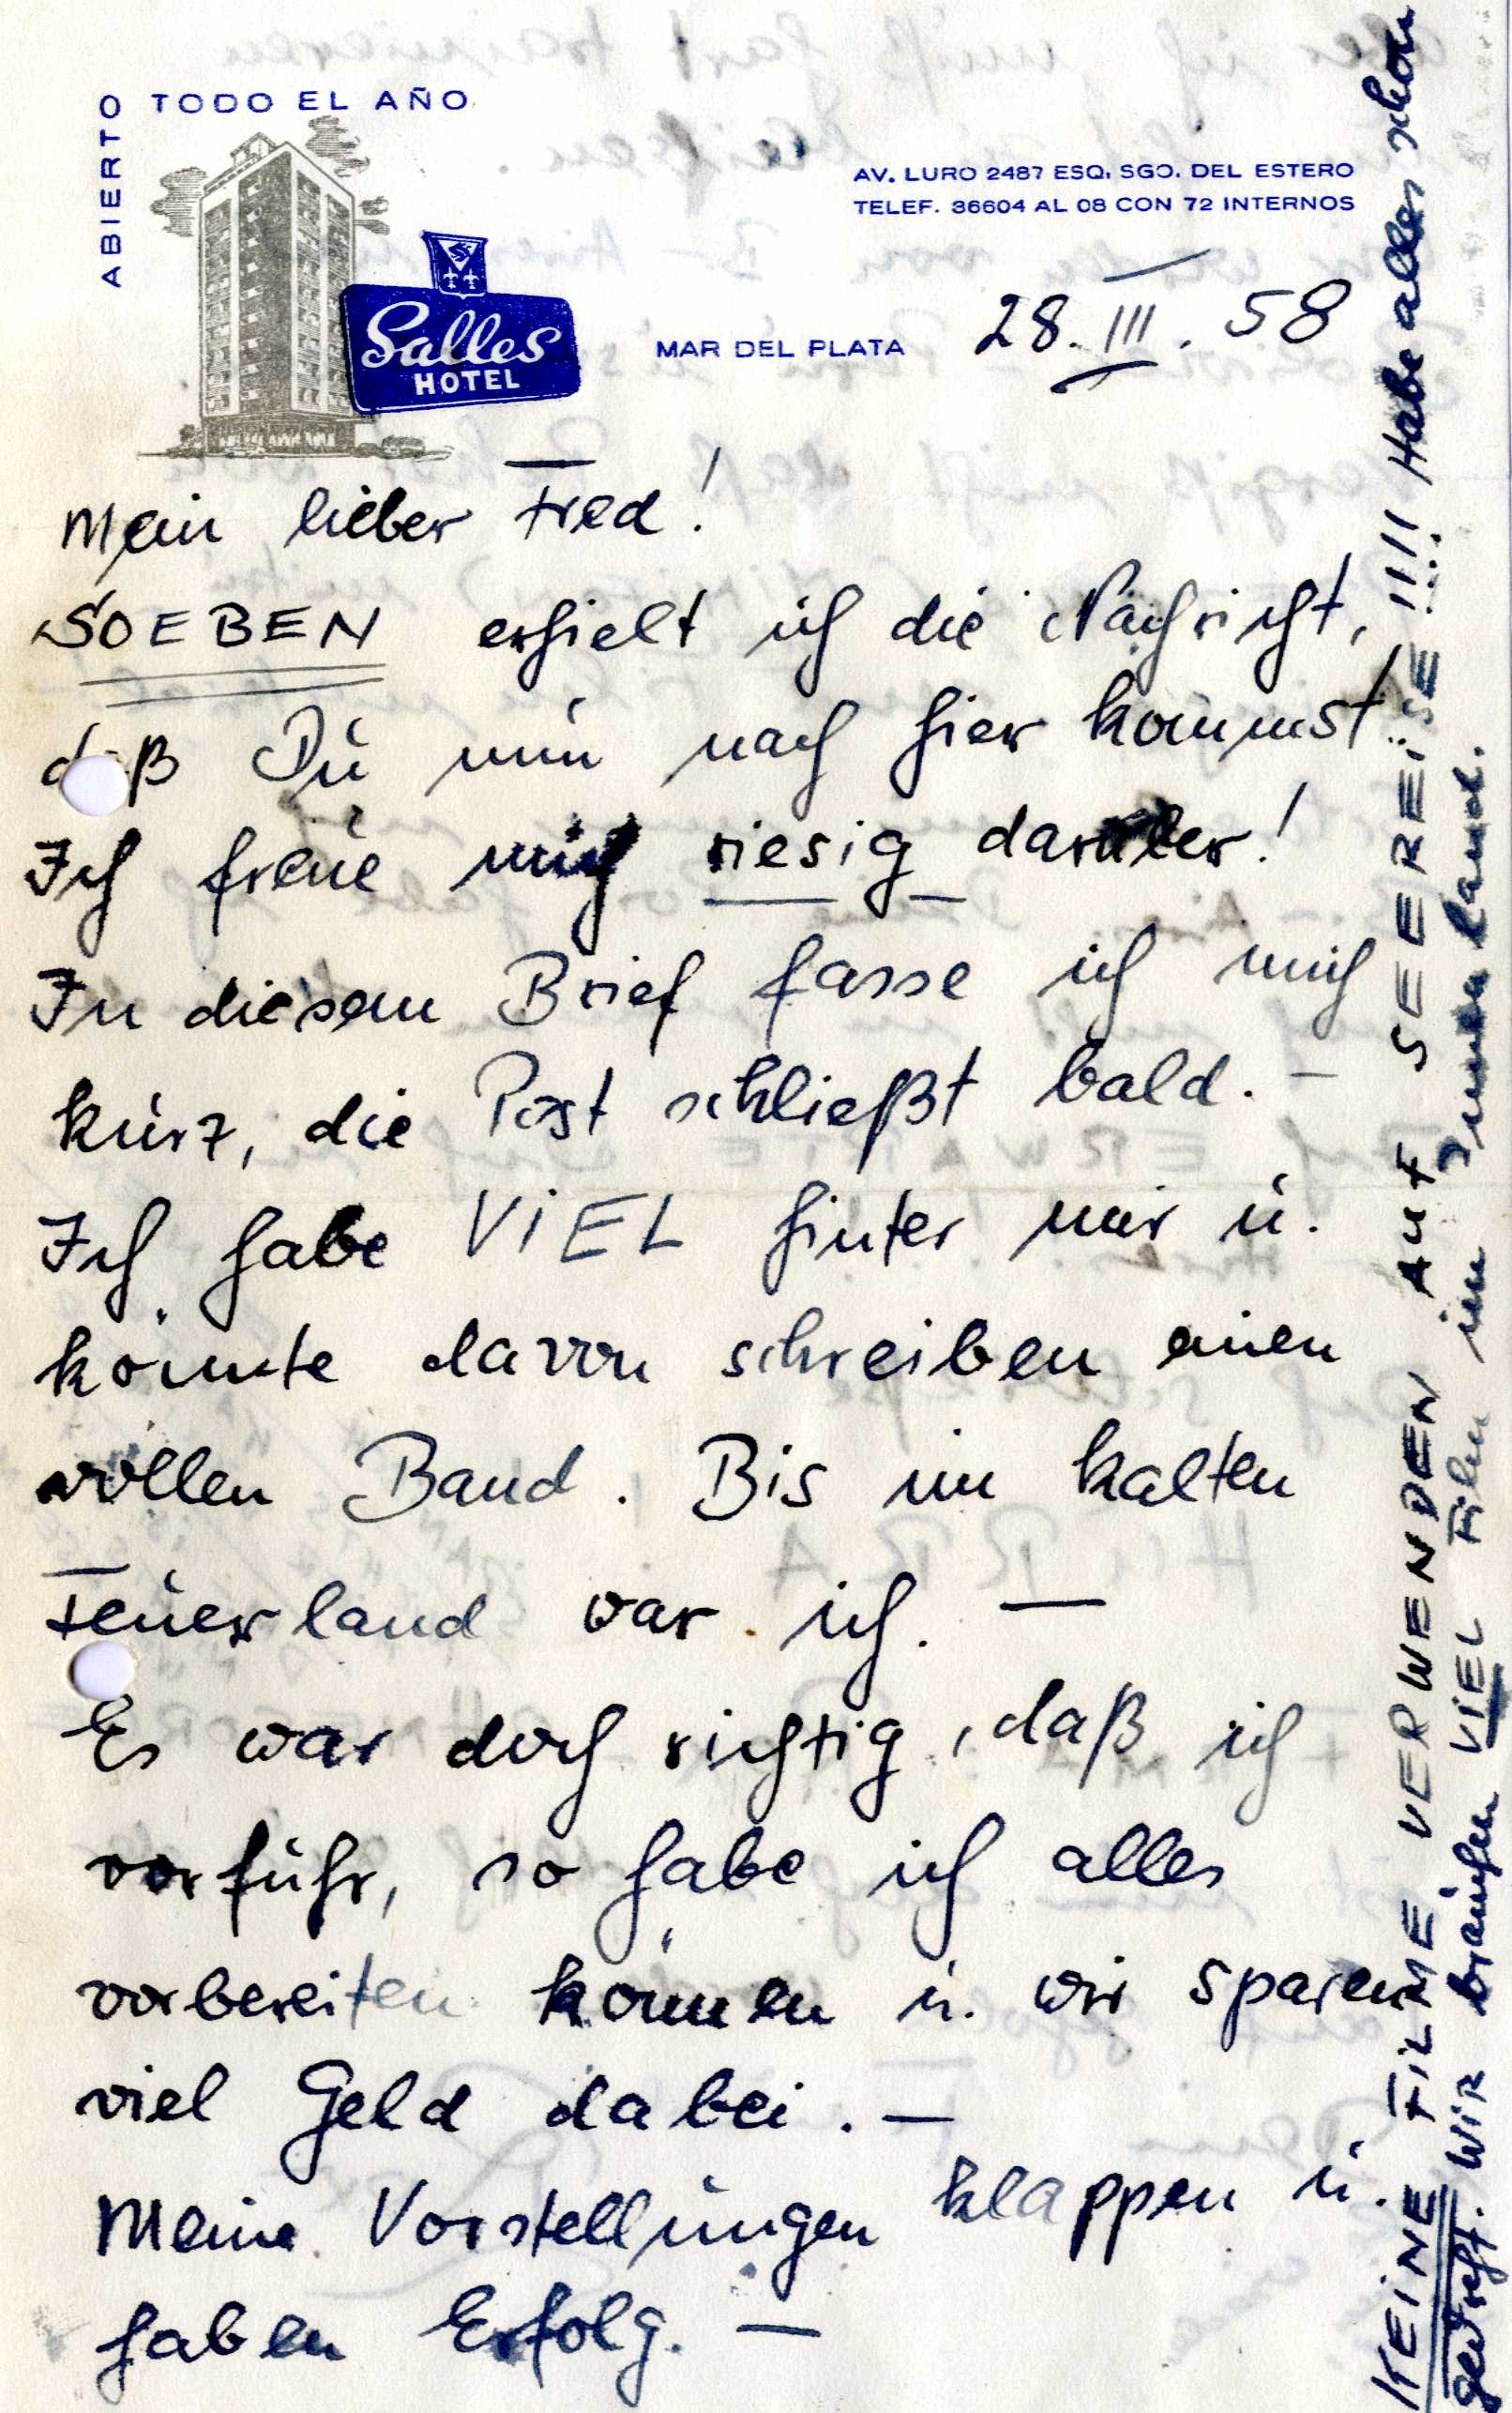 ABIERTO TODO EL AÑO
AV. LURO 2487 ESQ. SGO. DEL ESTERO
TELEF. 36604 AL 08 CON 72 INTERNOS
Salles
HOTEL
MAR DEL PLATA 28. III. 58
Mein lieber Fred!
SOEBEN erhielt ich die Nachricht,
daß Du nun nach hier kommst.
Ich freue mich riesig darüber!
In diesem Brief fasse ich mich
kurz, die Post schließt bald. –
Ich habe VIEL hinter mir u.
könnte davon schreiben einen
vollen Band. Bis im kalten
Feuerland war ich. —
Es war doch richtig, daß ich
vorfuhr, so habe ich alles
vorbereiten können u. wir sparen
viel Geld dabei. —
Meine Vorstellungen klappen u.
haben Erfolg. —
KEINE FILME VERWENDEN AUF SEEREISE!!!! Habe alles schon
gedreht. Wir brauchen VIEL Film im Innenland.